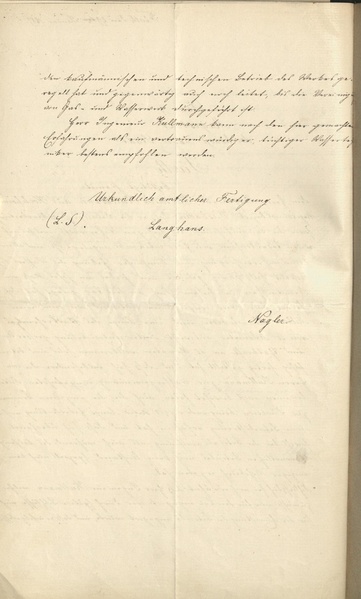 den kaufmännischen und technischen Betrieb des Werkes ge-
regelt hat und gegenwärtig auch noch leitet, bis die Vereinigung
von Gas- und Wasserwerk durchgeführt ist.
Herr Ingenieur Kullmann kann nach den hier gemachten
Erfahrungen als ein vertrauenswürdiger, tüchtiger
über bestens empfohlen werden.
Urkundlich amtlicher Fertigung
(L. S.).
Langhans.
Nägler.